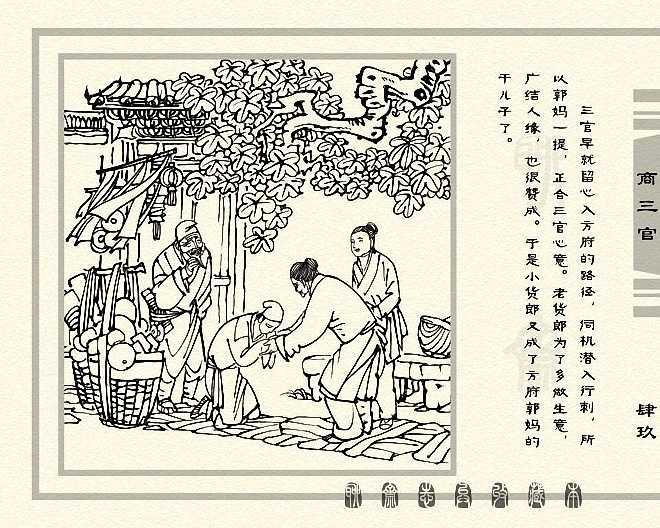 三官早就留心入方府的路径，伺机潜入行刺，所
以郭妈一提，正合三官心意。老货郎为了多做生意，
广结人缘，也很赞成。于是小货郎又成了方府郭妈的
干儿子了。
商三官
肆玖